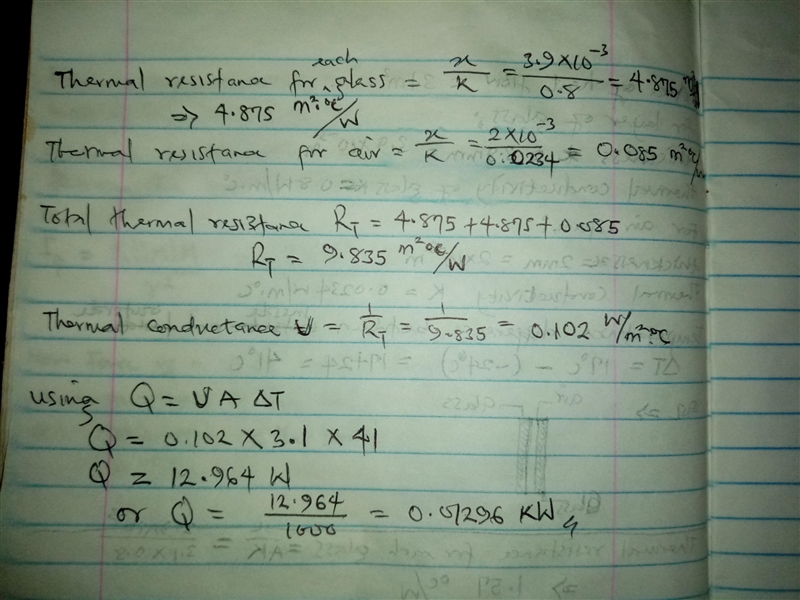 Thermal resistance for each glass = x/K = 3.9×10⁻³/0.8 = 4.875
⇒ 4.875 m²·°C/W
Thermal resistance for air = x/K = 2×10⁻³/0.0234 = 0.085 m²°C/W
Total thermal resistance R_T = 4.875 + 4.875 + 0.085
R_T = 9.835 m²°C/W
Thermal conductance U = 1/R_T = 1/9.835 = 0.102 W/m²·°C
using Q = U A ΔT
Q = 0.102 × 3.1 × 41
Q = 12.964 W
or Q = 12.964/1000 = 0.01296 KW